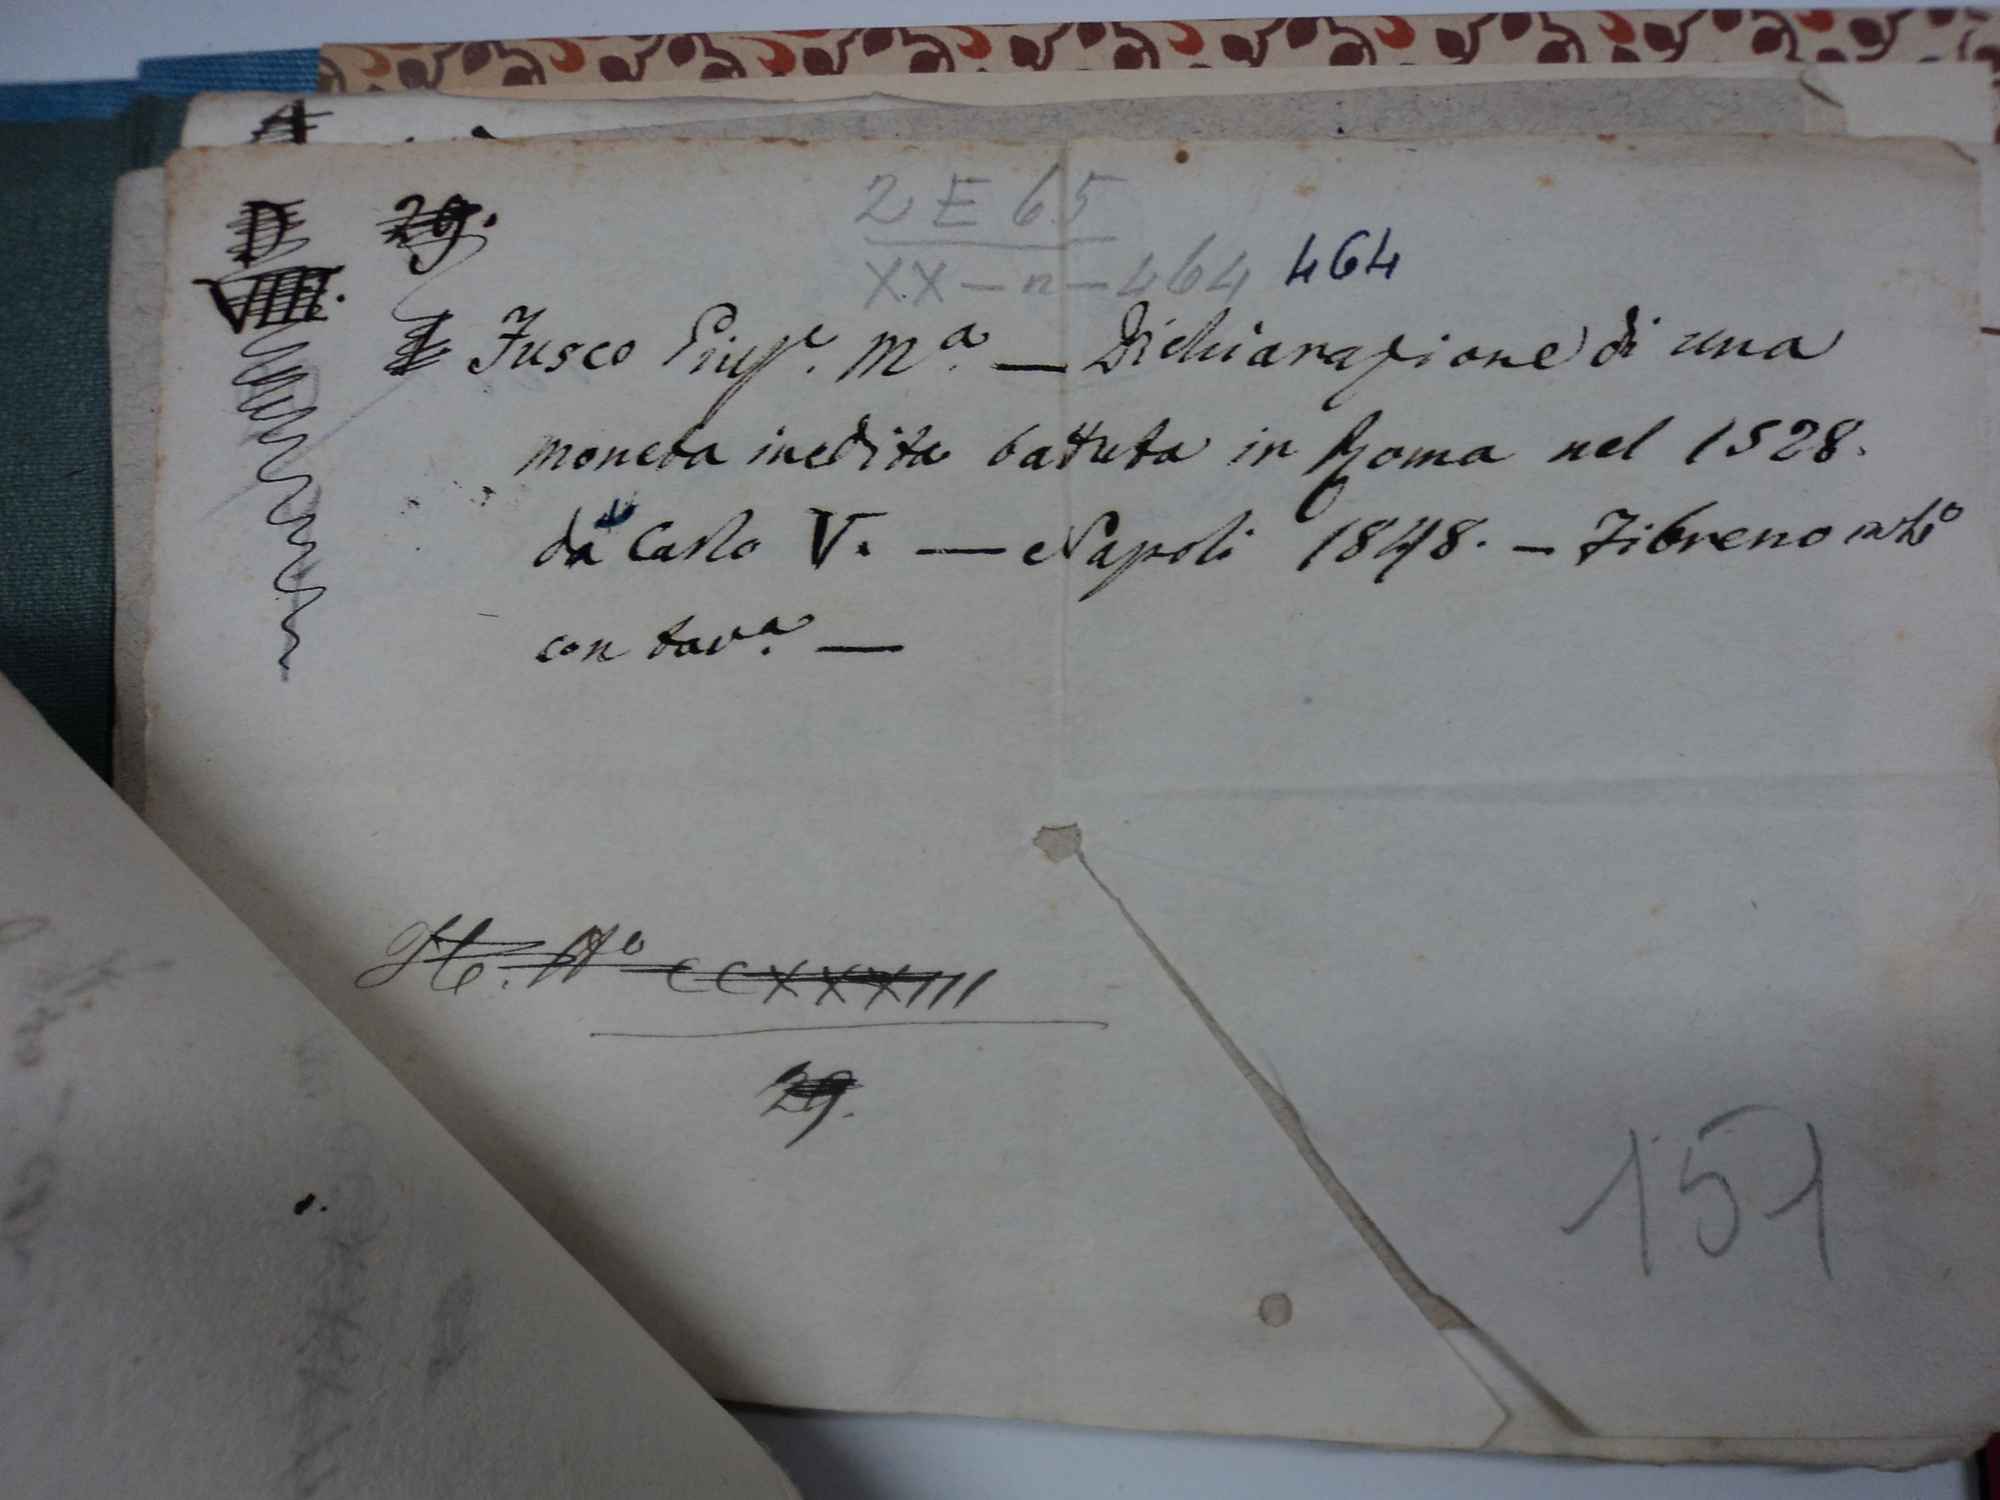 A
D 29.
VIIII.
2 E 65
XX - n - 464 464
Fusco Gius.e M.a — Dichiarazione di una
moneta inedita battuta in Roma nel 1528.
da Carlo V. — Napoli 1848. — Fibreno
con tav.a —
H. N.o CCXXXIII
29.
151